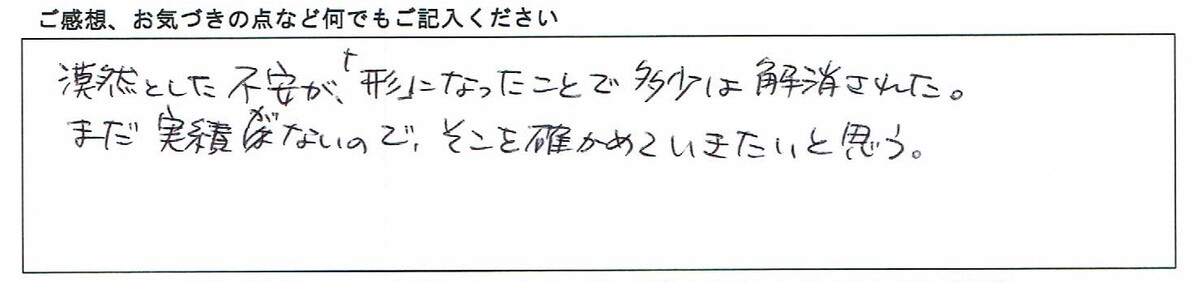 ご感想、お気づきの点など何でもご記入ください
漠然とした不安が、「形」になったことで多少は解消された。
まだ実績がないので、そこを確かめていきたいと思う。